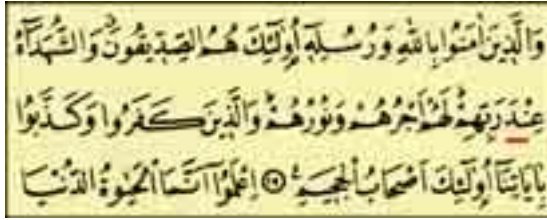 وَالَّذِينَ اٰمَنُوا بِاللّٰهِ وَرُسُلِهٖٓ اُو۬لٰٓئِكَ هُمُ الصِّدّ۪يقُونَۗ وَالشُّهَدَٓاءُ
عِنْدَ رَبِّهِمْۜ لَهُمْ اَجْرُهُمْ وَنُورُهُمْۜ وَالَّذِينَ كَفَرُوا وَكَذَّبُوا
بِاٰيَاتِنَٓا اُو۬لٰٓئِكَ اَصْحَابُ الْجَح۪يمِ۟ ﴿١٩﴾ اِعْلَمُٓوا اَنَّمَا الْحَيٰوةُ الدُّنْيَا